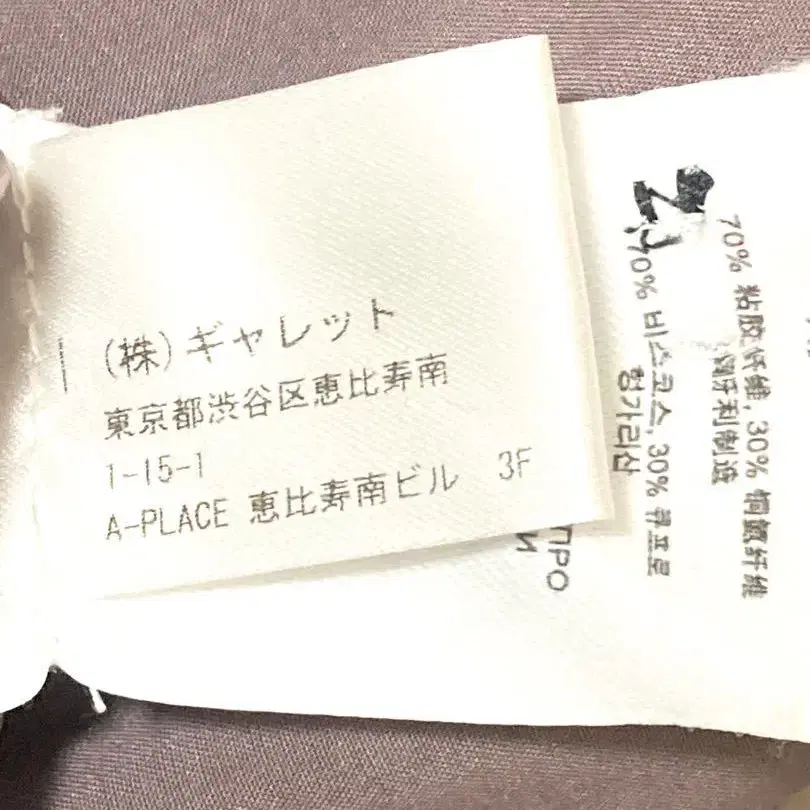 (株)ギャレット
東京都渋谷区恵比寿南
1-15-1
A-PLACE 恵比寿南ビル 3F
70% 비스코스, 30% 큐프로
헝가리산
70% 粘胶纤维, 30% 铜氨纤维
匈牙利制造